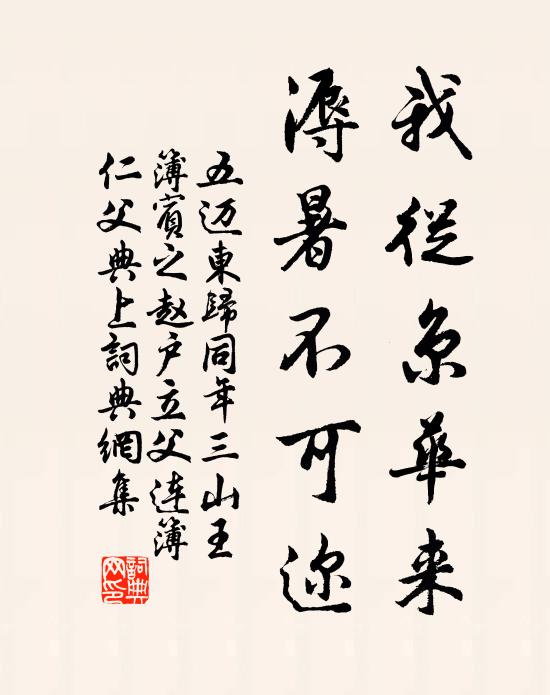 我從京華来
溽暑不可迩
五迈東歸同年三山王
薄賓之赵户立父连薄
仁父典上詞典網集
詞典网印